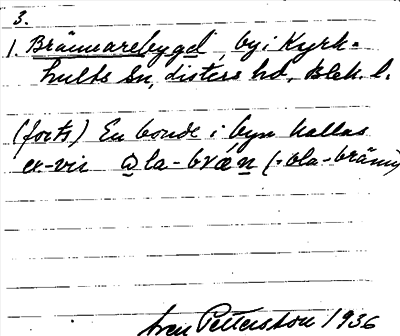 3.
1. Brännarebygd by i Kyrk-
hults sn, Listers hd, Blek. l.
(forts) En bonde i byn kallas
ex-vis ola-brän (: ola-bränn)
Sven Pettersson 1936